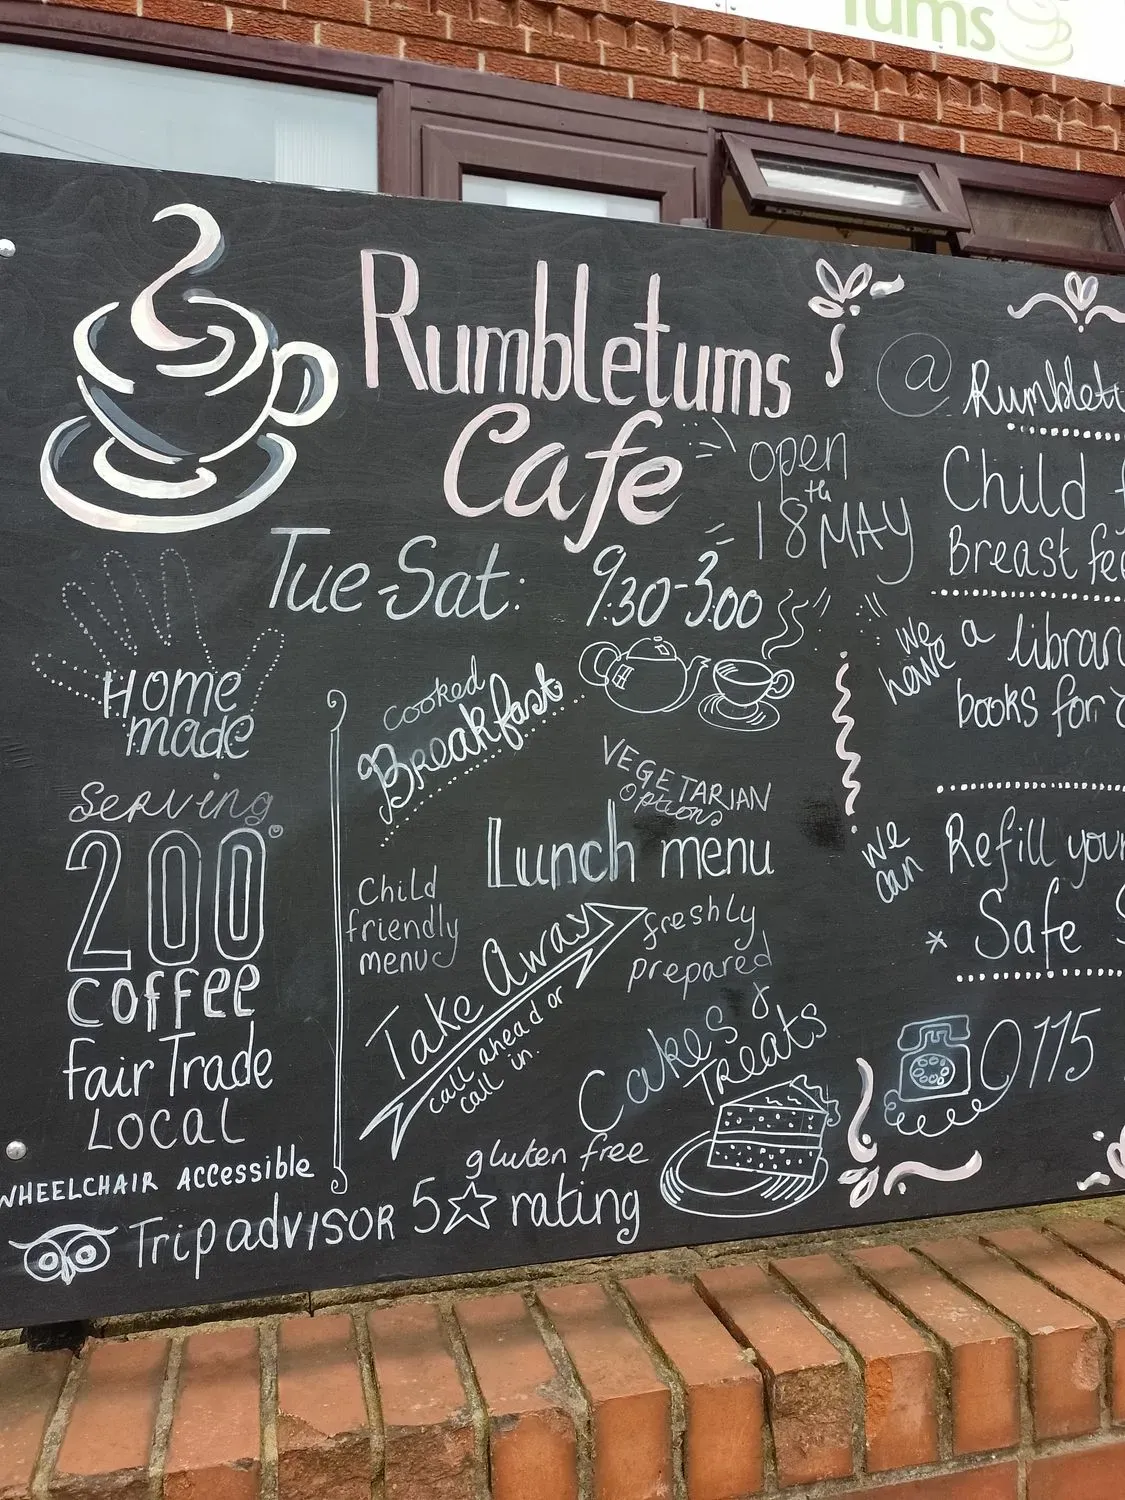 tums
Rumbletums
Cafe
open
18th MAY
Tue-Sat: 9.30-3.00
Home
made
Serving
200°
coffee
fair Trade
LOCAL
WHEELCHAIR ACCESSIBLE
Tripadvisor 5☆ rating
cooked
Breakfast
VEGETARIAN
options
Lunch menu
Child
friendly
menu
freshly
prepared
Take Away
call ahead or
call in.
Cakes &
Treats
gluten free
@ Rumblet
Child f
Breast fee
we
have
a librar
books for
we
can
Refill your
* Safe S
0115